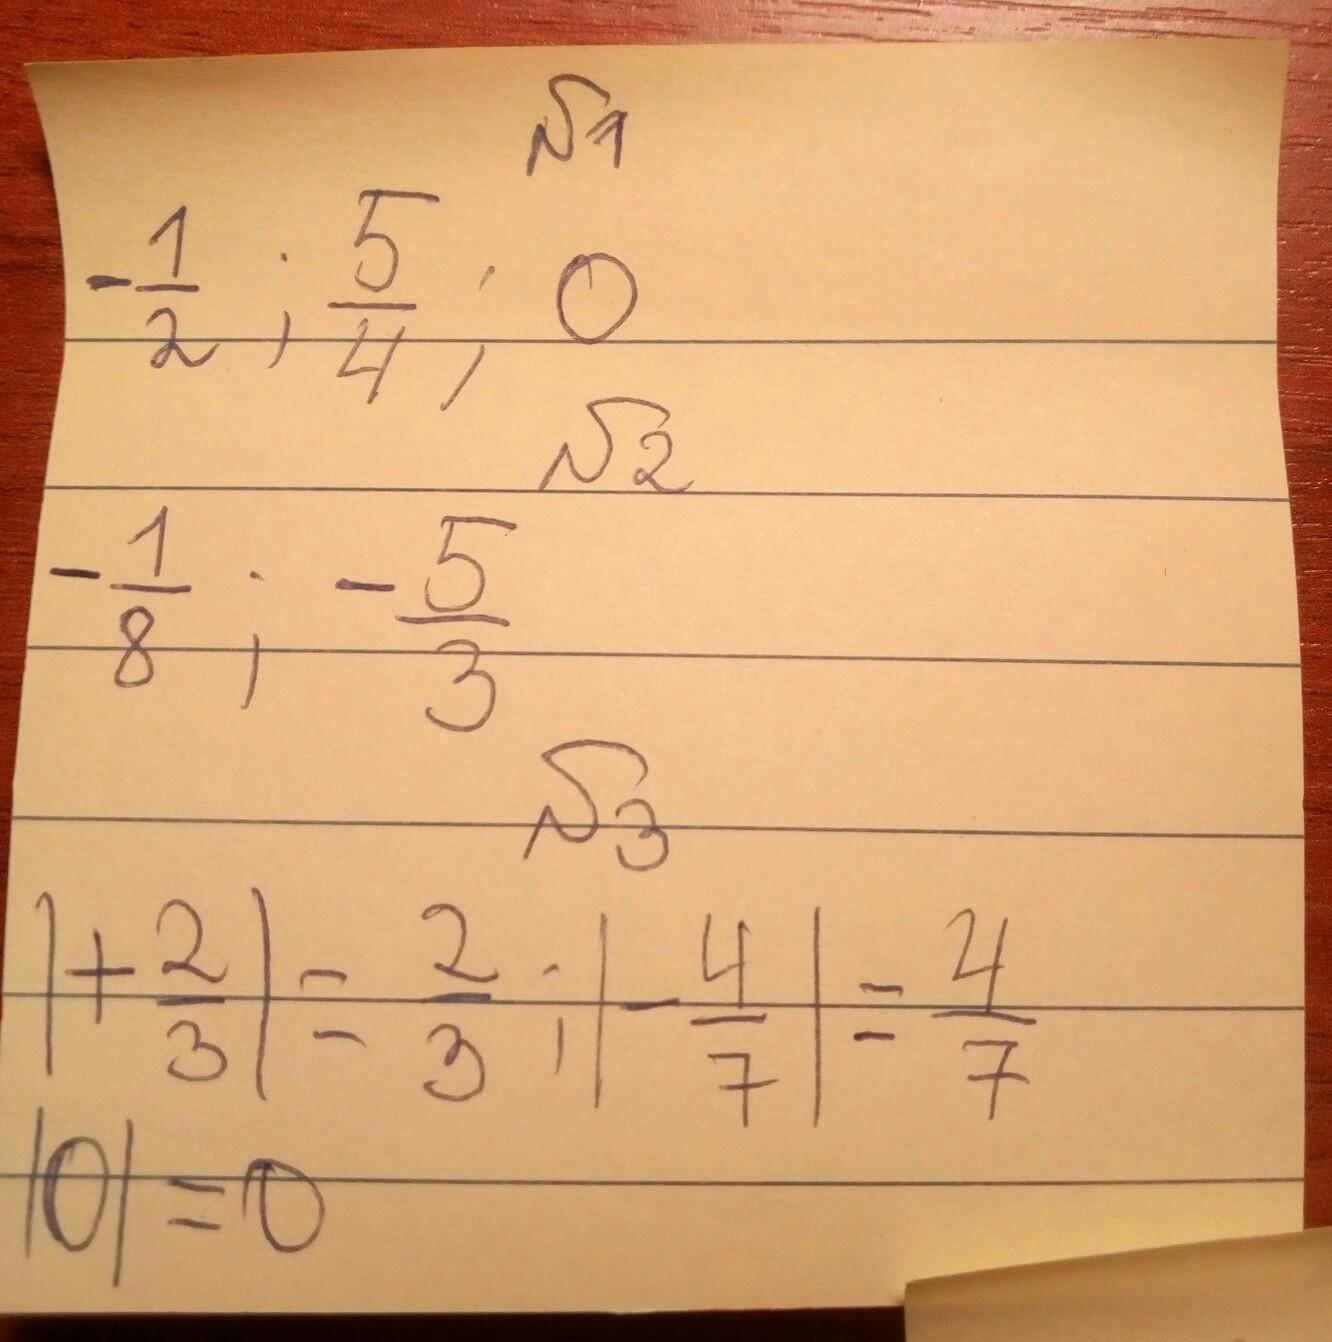 №1
-1/2 ; 5/4 ; 0
№2
-1/8 ; -5/3
№3
|+2/3| = 2/3 ; |-4/7| = 4/7
|0| = 0